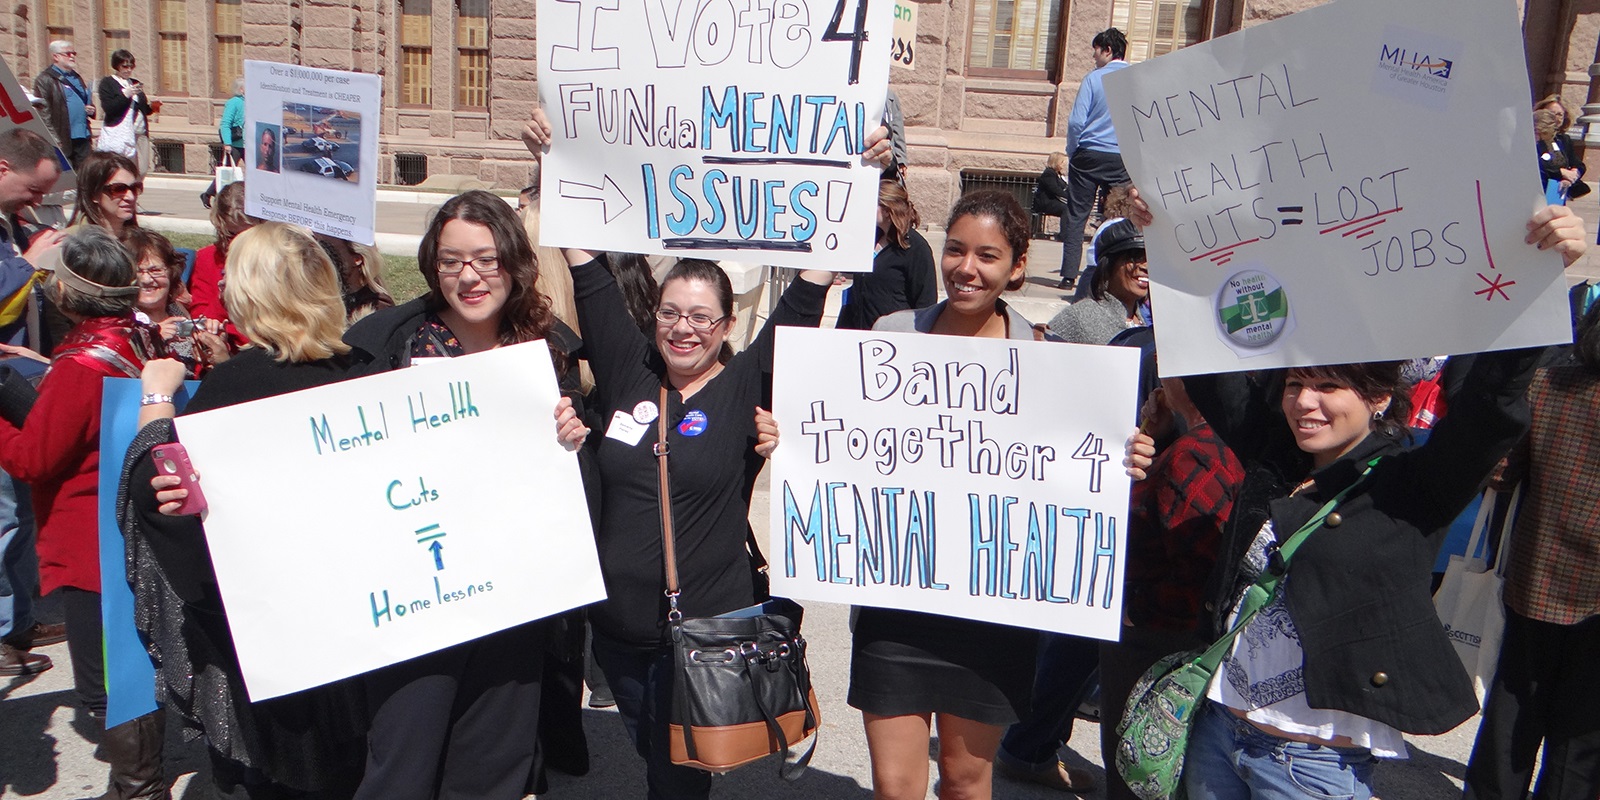 Over a $1,000,000 per case
Identification and Treatment is CHEAPER
Support Mental Health Emergency
Response BEFORE this happens.
I Vote 4
FUNdaMENTAL
→ ISSUES!
an
ess
MENTAL
HEALTH
CUTS = LOST
JOBS!
MHA
Mental Health America
of Greater Houston
No health
without
mental
health
Mental Health
Cuts
=
↑
Homelessnes
Band
together 4
MENTAL HEALTH